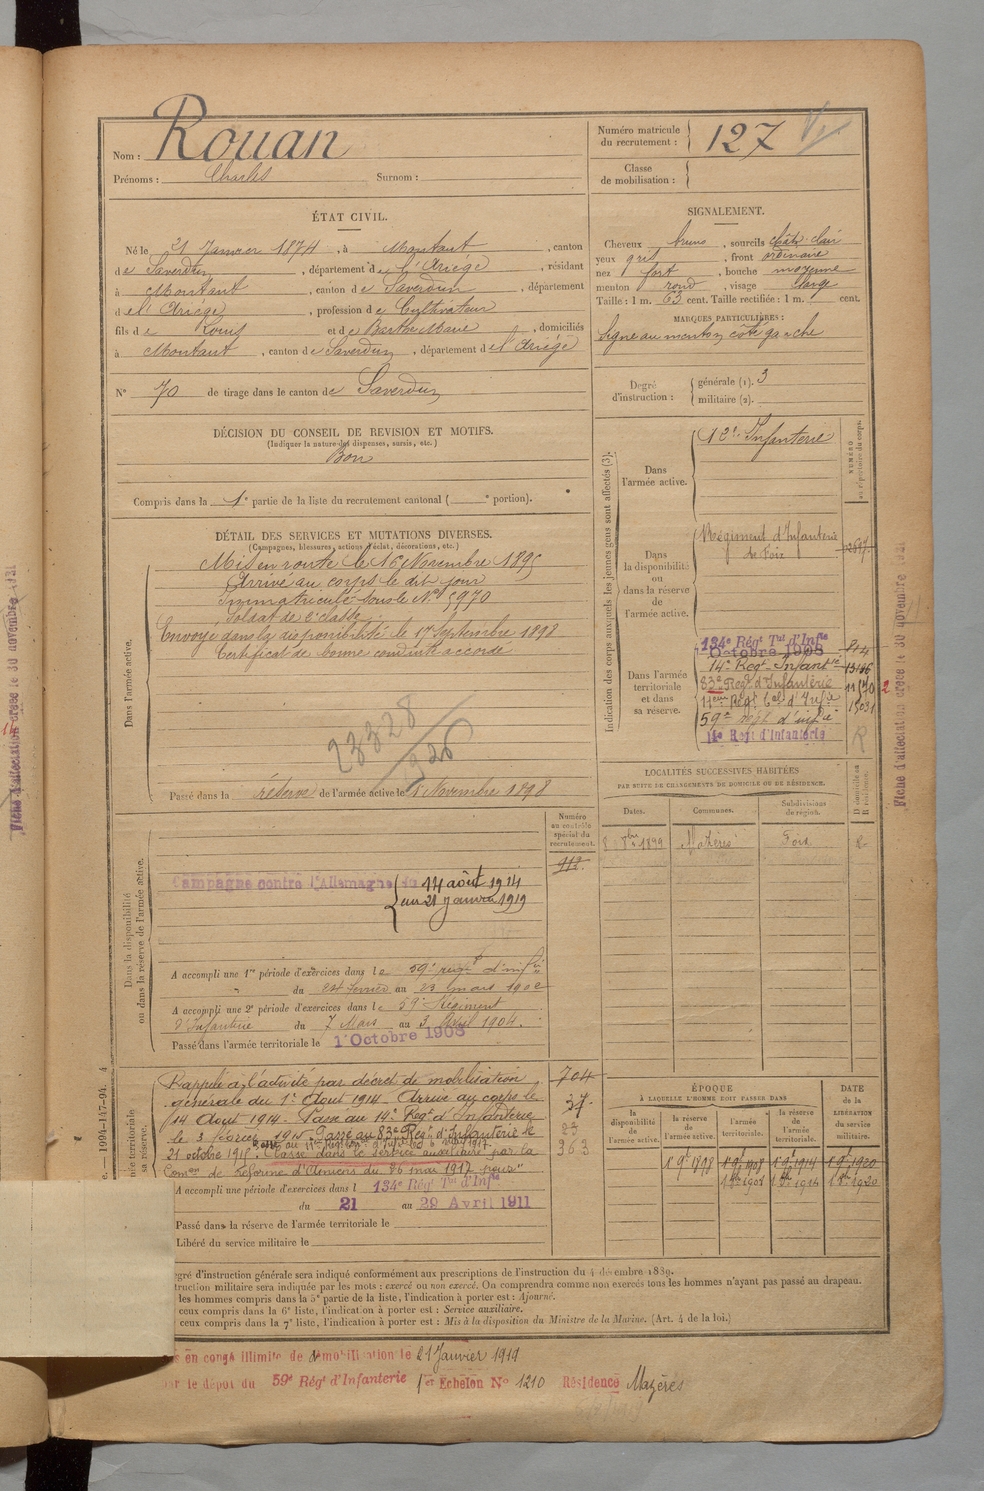 Nom : Rouan
Prénoms : Charles Surnom :
Numéro matricule du recrutement : 127
Classe de mobilisation :
ÉTAT CIVIL.
Né le 21 Janvier 1874, à Montaut, canton
de Saverdun, département de l'Ariége, résidant
à Montaut, canton de Saverdun, département
de l'Ariége, profession de Cultivateur
fils de Louis et de Barthe Marie, domiciliés
à Montaut, canton de Saverdun, département de l'Ariége
N° 70 de tirage dans le canton de Saverdun
SIGNALEMENT.
Cheveux bruns, sourcils chât. clair
yeux gris, front ordinaire
nez fort, bouche moyenne
menton rond, visage large
Taille : 1 m. 63 cent. Taille rectifiée : 1 m. cent.
MARQUES PARTICULIÈRES :
Signe au menton côté gauche
Degré d'instruction : générale (1). 3
militaire (2).
DÉCISION DU CONSEIL DE REVISION ET MOTIFS.
(Indiquer la nature des dispenses, sursis, etc.)
Bon
Compris dans la 1e partie de la liste du recrutement cantonal ( e portion).
DÉTAIL DES SERVICES ET MUTATIONS DIVERSES.
(Campagnes, blessures, actions d'éclat, décorations, etc.)
Dans l'armée active.
Mis en route le 16 Novembre 1895
Arrivé au corps le dit jour
Immatriculé sous le N° 5970
Soldat de 2e classe
Envoyé dans la disponibilité le 17 Septembre 1898
Certificat de bonne conduite accordé
23328
926
Passé dans la réserve de l'armée active le 1 Novembre 1898
Indication des corps auxquels les jeunes gens sont affectés (3).
NUMÉRO au répertoire du corps.
Dans l'armée active.
12e Infanterie
Dans la disponibilité ou dans la réserve de l'armée active.
Régiment d'Infanterie
de Foix
Dans l'armée territoriale et dans sa réserve.
134e Régt Tal d'Infie
Octobre 1908
14e Regt Infantie
83e Regt d'Infanterie
11eme Régt Cal d'Infie
59e regt d'infie
14e Regt d'Infanterie
R
LOCALITÉS SUCCESSIVES HABITÉES
PAR SUITE DE CHANGEMENTS DE DOMICILE OU DE RÉSIDENCE.
Dates. Communes. Subdivisions de région. D domicile ou R résidence.
8 8bre 1899 Mazères Foix R
Dans la disponibilité ou dans la réserve de l'armée active.
Numéro au contrôle spécial du recrutement.
912
Campagne contre l'Allemagne du 14 août 1914
au 21 janvier 1919
A accompli une 1re période d'exercices dans le 59e regt d'infie
du 24 Fevrier au 23 mars 1902
A accompli une 2e période d'exercices dans le 59e Régiment
d'Infanterie du 7 Mars au 3 Avril 1904.
Passé dans l'armée territoriale le 1 Octobre 1908
Rappelé à l'activité par décret de mobilisation
générale du 1er Aout 1914. Arrivé au corps le
14 Aout 1914. Passé au 14e Regt d'Infanterie
le 3 février 1915 Passé au 83e Regt d'Infanterie le
21 octobre 1915.
Classé dans le service auxiliaire par la
Comon de Réforme d'Amiens du 26 mai 1917 pour"
704
37
23
363
A accompli une période d'exercices dans l 134e Régt Tal d'Infie
du 21 au 29 Avril 1911
Passé dans la réserve de l'armée territoriale le
Libéré du service militaire le
ÉPOQUE
À LAQUELLE L'HOMME DOIT PASSER DANS
la disponibilité de l'armée active. la réserve de l'armée active. l'armée territoriale. la réserve de l'armée territoriale.
DATE de la LIBÉRATION du service militaire.
1er 9e 1898 1er 9e 1908 1er 9e 1914 1er 9e 1920
egré d'instruction générale sera indiqué conformément aux prescriptions de l'instruction du 4 décembre 1889.
truction militaire sera indiquée par les mots : exercé ou non exercé. On comprendra comme non exercés tous les hommes n'ayant pas passé au drapeau.
les hommes compris dans la 5e partie de la liste, l'indication à porter est : Ajourné.
ceux compris dans la 6e liste, l'indication à porter est : Service auxiliaire.
ceux compris dans la 7e liste, l'indication à porter est : Mis à la disposition du Ministre de la Marine. (Art. 4 de la loi.)
en congé illimité de démobilisation le 21 Janvier 1919
le dépôt du 59e Régt d'Infanterie 1er Echelon N° 1210 Résidence Mazères
Fiche d'affectation créée le 30 novembre 1921
1994-147-94. 4